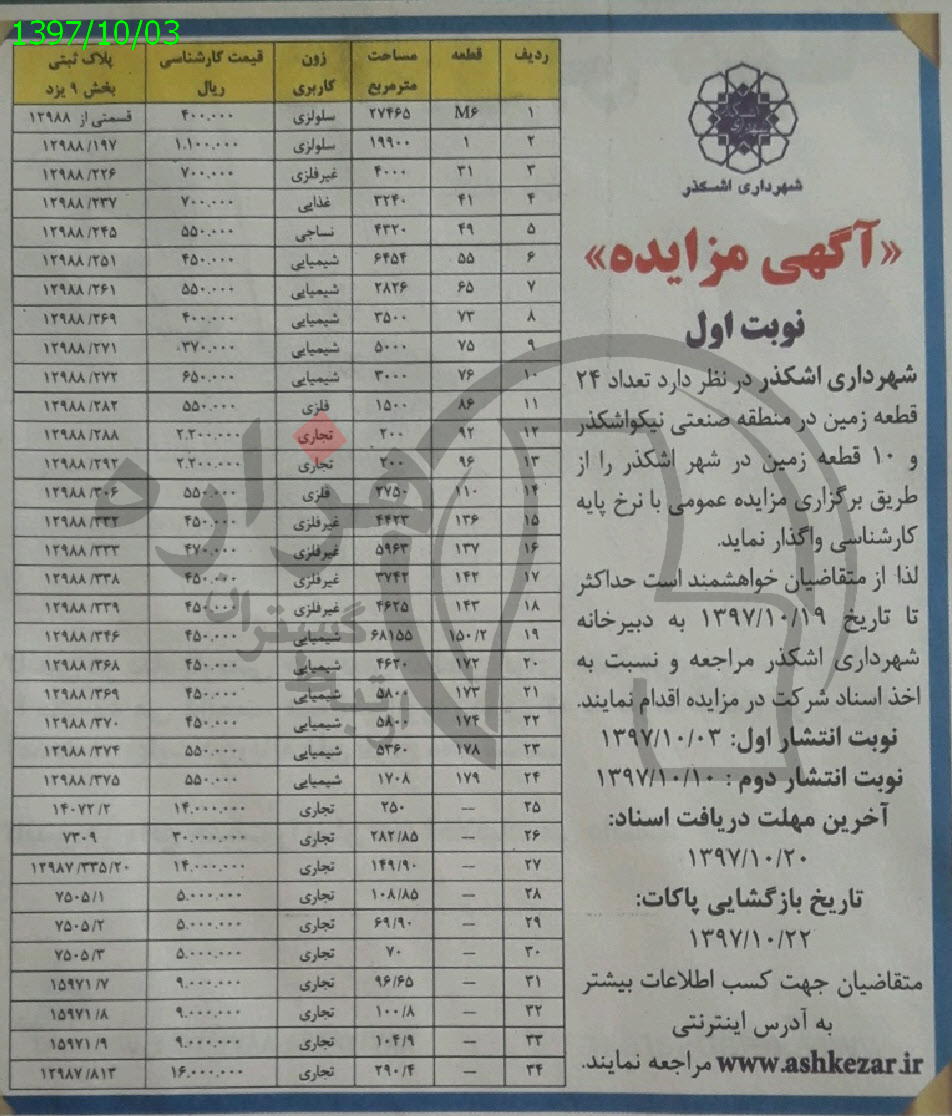 1397/10/03
شهرداری اشکذر
«آگهی مزایده»
نوبت اول
شهرداری اشکذر در نظر دارد تعداد ۲۴
قطعه زمین در منطقه صنعتی نیکواشکذر
و ۱۰ قطعه زمین در شهر اشکذر را از
طریق برگزاری مزایده عمومی با نرخ پایه
کارشناسی واگذار نماید.
لذا از متقاضیان خواهشمند است حداکثر
تا تاریخ ۱۳۹۷/۱۰/۱۹ به دبیرخانه
شهرداری اشکذر مراجعه و نسبت به
اخذ اسناد شرکت در مزایده اقدام نمایند.
نوبت انتشار اول: ۱۳۹۷/۱۰/۰۳
نوبت انتشار دوم : ۱۳۹۷/۱۰/۱۰
آخرین مهلت دریافت اسناد:
۱۳۹۷/۱۰/۲۰
تاریخ بازگشایی پاکات:
۱۳۹۷/۱۰/۲۲
متقاضیان جهت کسب اطلاعات بیشتر
به آدرس اینترنتی
www.ashkezar.ir مراجعه نمایند.
ردیف قطعه مساحت مترمربع زون کاربری قیمت کارشناسی ریال پلاک ثبتی بخش ۹ یزد
۱ M۶ ۲۷۴۶۵ سلولزی ۴۰۰.۰۰۰ قسمتی از ۱۲۹۸۸
۲ ۱ ۱۹۹۰۰ سلولزی ۱.۱۰۰.۰۰۰ ۱۲۹۸۸/۱۹۷
۳ ۳۱ ۴۰۰۰ غیرفلزی ۷۰۰.۰۰۰ ۱۲۹۸۸/۲۲۶
۴ ۴۱ ۳۲۴۰ غذایی ۷۰۰.۰۰۰ ۱۲۹۸۸/۲۳۷
۵ ۴۹ ۴۳۲۰ نساجی ۵۵۰.۰۰۰ ۱۲۹۸۸/۲۴۵
۶ ۵۵ ۶۴۵۴ شیمیایی ۴۵۰.۰۰۰ ۱۲۹۸۸/۲۵۱
۷ ۶۵ ۲۸۲۶ شیمیایی ۵۵۰.۰۰۰ ۱۲۹۸۸/۲۶۱
۸ ۷۳ ۳۵۰۰ شیمیایی ۴۰۰.۰۰۰ ۱۲۹۸۸/۲۶۹
۹ ۷۵ ۵۰۰۰ شیمیایی ۳۷۰.۰۰۰ ۱۲۹۸۸/۲۷۱
۱۰ ۷۶ ۳۰۰۰ شیمیایی ۶۵۰.۰۰۰ ۱۲۹۸۸/۲۷۲
۱۱ ۸۶ ۱۵۰۰ فلزی ۵۵۰.۰۰۰ ۱۲۹۸۸/۲۸۲
۱۲ ۹۲ ۲۰۰ تجاری ۲.۲۰۰.۰۰۰ ۱۲۹۸۸/۲۸۸
۱۳ ۹۶ ۲۰۰ تجاری ۲.۲۰۰.۰۰۰ ۱۲۹۸۸/۲۹۲
۱۴ ۱۱۰ ۲۷۵۰ فلزی ۵۵۰.۰۰۰ ۱۲۹۸۸/۳۰۶
۱۵ ۱۳۶ ۴۴۲۳ غیرفلزی ۴۵۰.۰۰۰ ۱۲۹۸۸/۳۳۲
۱۶ ۱۳۷ ۵۹۶۳ غیرفلزی ۴۷۰.۰۰۰ ۱۲۹۸۸/۳۳۳
۱۷ ۱۴۲ ۳۷۴۲ غیرفلزی ۴۵۰.۰۰۰ ۱۲۹۸۸/۳۳۸
۱۸ ۱۴۳ ۴۶۲۵ غیرفلزی ۴۵۰.۰۰۰ ۱۲۹۸۸/۳۳۹
۱۹ ۱۵۰/۲ ۶۸۱۵۵ شیمیایی ۴۵۰.۰۰۰ ۱۲۹۸۸/۳۴۶
۲۰ ۱۷۲ ۴۶۲۰ شیمیایی ۴۵۰.۰۰۰ ۱۲۹۸۸/۳۶۸
۲۱ ۱۷۳ ۵۸۰۰ شیمیایی ۴۵۰.۰۰۰ ۱۲۹۸۸/۳۶۹
۲۲ ۱۷۴ ۵۸۰۰ شیمیایی ۴۵۰.۰۰۰ ۱۲۹۸۸/۳۷۰
۲۳ ۱۷۸ ۵۳۶۰ شیمیایی ۵۵۰.۰۰۰ ۱۲۹۸۸/۳۷۴
۲۴ ۱۷۹ ۱۷۰۸ شیمیایی ۵۵۰.۰۰۰ ۱۲۹۸۸/۳۷۵
۲۵ — ۲۵۰ تجاری ۱۴.۰۰۰.۰۰۰ ۱۴۰۷۲/۲
۲۶ — ۲۸۲/۸۵ تجاری ۳۰.۰۰۰.۰۰۰ ۷۳۰۹
۲۷ — ۱۴۹/۹۰ تجاری ۱۴.۰۰۰.۰۰۰ ۱۲۹۸۷/۳۳۵/۲۰
۲۸ — ۱۰۸/۸۵ تجاری ۵.۰۰۰.۰۰۰ ۷۵۰۵/۱
۲۹ — ۶۹/۹۰ تجاری ۵.۰۰۰.۰۰۰ ۷۵۰۵/۲
۳۰ — ۷۰ تجاری ۵.۰۰۰.۰۰۰ ۷۵۰۵/۳
۳۱ — ۹۶/۶۵ تجاری ۹.۰۰۰.۰۰۰ ۱۵۹۷۱/۷
۳۲ — ۱۰۰/۸ تجاری ۹.۰۰۰.۰۰۰ ۱۵۹۷۱/۸
۳۳ — ۱۰۴/۹ تجاری ۹.۰۰۰.۰۰۰ ۱۵۹۷۱/۹
۳۴ — ۲۹۰/۴ تجاری ۱۶.۰۰۰.۰۰۰ ۱۲۹۸۷/۸۱۳